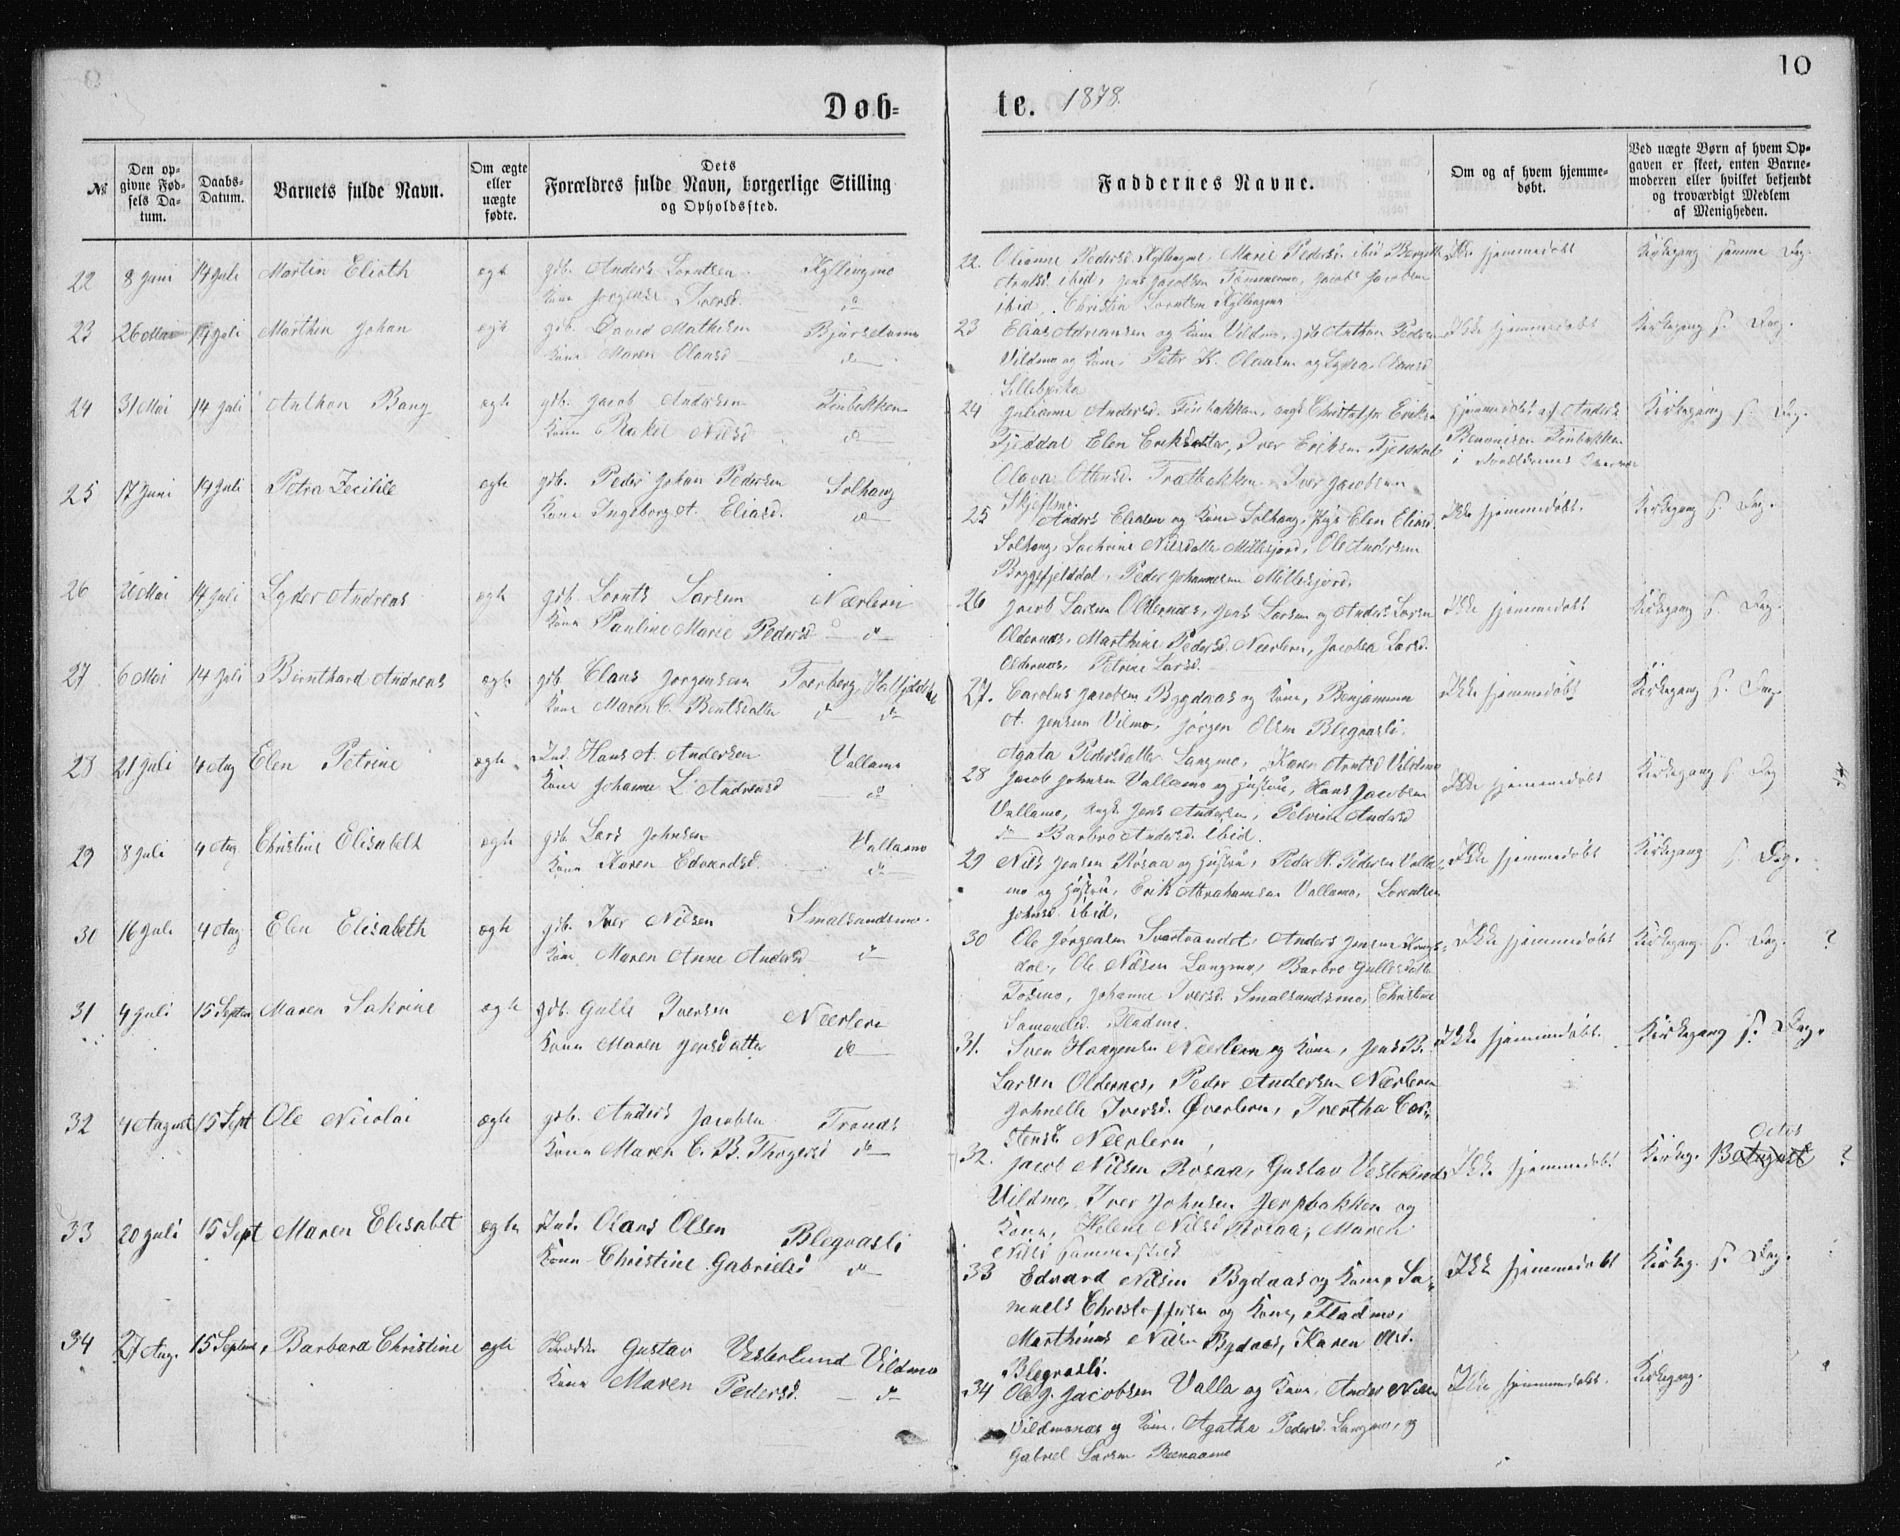 10
Døb-
te. 1878.
№
Den opgivne Fødsels Datum.
Daabs-Datum.
Barnets fulde Navn.
Om ægte eller uægte fødte.
Dets Forældres fulde Navn, borgerlige Stilling og Opholdssted.
Faddernes Navne.
Om og af hvem hjemmedøbt.
Ved uægte Børn af hvem Opgaven er skeet, enten Barnemoderen eller hvilket bekjendt og troværdigt Medlem af Menigheden.
22 8 Juni 14 Juli Martin Elioth ægte gdb. Anders Lorntsen Kyllingmo
Kone Jørgensd Iversd. do
22. Pedersd. Kyllingmo, Marie Pedersd. ibid. Ikke hjemmedøbt Kirkegang samme Dag.
Arntsd. ibid, Jens Jacobsen Jacob Jacobsen
ibid. Christin Lorntsen Kyllingmo
23 26 Mai 14 Juli Marthin Johan ægte gdb. David Mathisen
Kone Maren Olausd do
23 Elias Adriansen og Kone Vildmo, Anthon Pedersen Ikke hjemmedøbt Kirkegang s. Dag.
Vildmo og Kone, Peter K. Olausen og Lydia Olausd
24 31 Mai 14 Juli Anthon Bang ægte gdb. Jacob Andersen Finbakken
Kone Rakel Nilsd do
24 Julianne Andersd. Finbakken, ungk Christoffer Eriksen Hjemmedøbt af Anders Kirkegang s. Dag.
Fjeldal Elen Eriksdatter, Iver Eriksen Fjelddal Benonisen Finbakken
Olava Ottersd. Trætbakken Iver Jacobsen i Forældrenes
25 17 Juni 14 Juli Petra Zecilie ægte gdb. Peder Johan Pedersen Solhaug
Kone Ingeborg A. Eliasd. do
Skjeftmo.
25 Anders Eliasen og Kone Solhaug, Pige Elen Eliasd. Ikke hjemmedøbt. Kirkegang s. Dag.
Solhaug, Nilsdatter Millesjord, Ole Andersen
Byggfjelddal, Peder Johannesen Millesjord.
26 26 Mai 14 Juli Lyder Andreas ægte gdb. Lornts Larsen Nærlern
Kone Pauline Marie Pedersd do
26 Jacob Larsen Oldernæs, Jens Larsen og Anders Larsen Ikke hjemmedøbt Kirkegang s. Dag.
Oldernæs, Marthine Pedersd. Nærlern, Jacobea Larsd.
Oldernæs, Petrine Larsd.
27 6 Mai 14 Juli Bernthard Andreas ægte gdb. Claus Jørgensen Tverberg, Hatfjelddal
Kone Maren C. Bentsdatter do do
27. Carolus Jacobsen Bygdaas og Kone, Benjaminn Ikke hjemmedøbt Kirkegang s. Dag.
A. Jensen Vilmo, Jørgen Olsen Blegvasli.
Agata Pedersdatter Langmo, Karen Arntsd Vildmo
28 21 Juli 4 Aug Elen Petrine ægte Ind. Hans A. Andersen Vallamo
Kone Johanne L. Andreasd do
28 Jacob Johnsen Vallamo og Hustru, Hans Jacobsen Ikke hjemmedøbt Kirkegang s. Dag
Vallamo, ungk Jens Andersen, Petrine Andersd
do Barbro Andersd. ibid.
29 8 Juli 4 Aug Christine Elisabeth ægte gdb. Lars Johnsen Vallamo
Kone Karen Edvardsd. do
29 Nils Jensen Røsaa og Hustru, Peder N. Pedersen Valla- Ikke hjemmedøbt Kirkegang s. Dag.
mo og Hustru, Erik Abrahamsen Vallamo, Lorentsen
Johnsd. ibid.
30 16 Juli 4 Aug Elen Elisabeth ægte gdb. Iver Nilsen Smalsandsmo.
Kone Maren Anne Andersd do
30 Ole Jørgensen Svartvandet, Anders Jensen Ikke hjemmedøbt Kirkegang. s. Dag. ?
dal, Ole Nilsen Langmo, Barbro Gullesdatter
Tosmo, Johanne Iversd. Smalsandsmo, Christine
Samuelsd. Fladmo.
31 4 Juli 15 Septem Maren Sakrine ægte gdb. Gulle Iversen Neerlern
Kone Maren Jensdatter do
31. Sven Haagensen Neerlern og Kone, Jens B. Ikke hjemmedøbt. Kirkegang s. Dag.
Larsen Oldernes, Peder Andersen Nærlern
Johnelle Iversd. Øverlern, Ivertha Car-
stensd. Neerlern
32 4 August 15 Sept Ole Nicolai ægte gdb. Anders Jacobsen Tronds
Kone Maren C. B. Thogersd do
32. Jacob Nilsen Røsaa, Gustav Vesterlund Ikke hjemmedøbt Kirkeg. 13 August Octob ?
Vildmo, Iver Johnsen Jerpbakken og
Kone, Helene Nilsd Røsaa, Maren
Nilsd sammested
33 20 Juli 15 Sept Maren Elisabet ægte Ind. Olaus Olsen Blegvasli
Kone Christine Gabrielsd do
33 Edvard Nilsen Bygdaas og Kone, Sa- Ikke hjemmedøbt Kirkeg. s. Dag.
muels Christoffersen og Kone, Fladmo,
Marthinus Nilsen Bygdaas, Karen Olsd.
Blegvasli.
34 27 Aug. 15 Septem Barbara Christine ægte Gustav Vesterlund Vildmo
Kone Maren Pedersd. do
34 Ole J. Jacobsen Valla og Kone, Anders Nilsen Ikke hjemmedøbt. Kirkegang.
Vildmonæs og Kone, Agatha Pedersd. Langmo, og
Gabriel Larsen